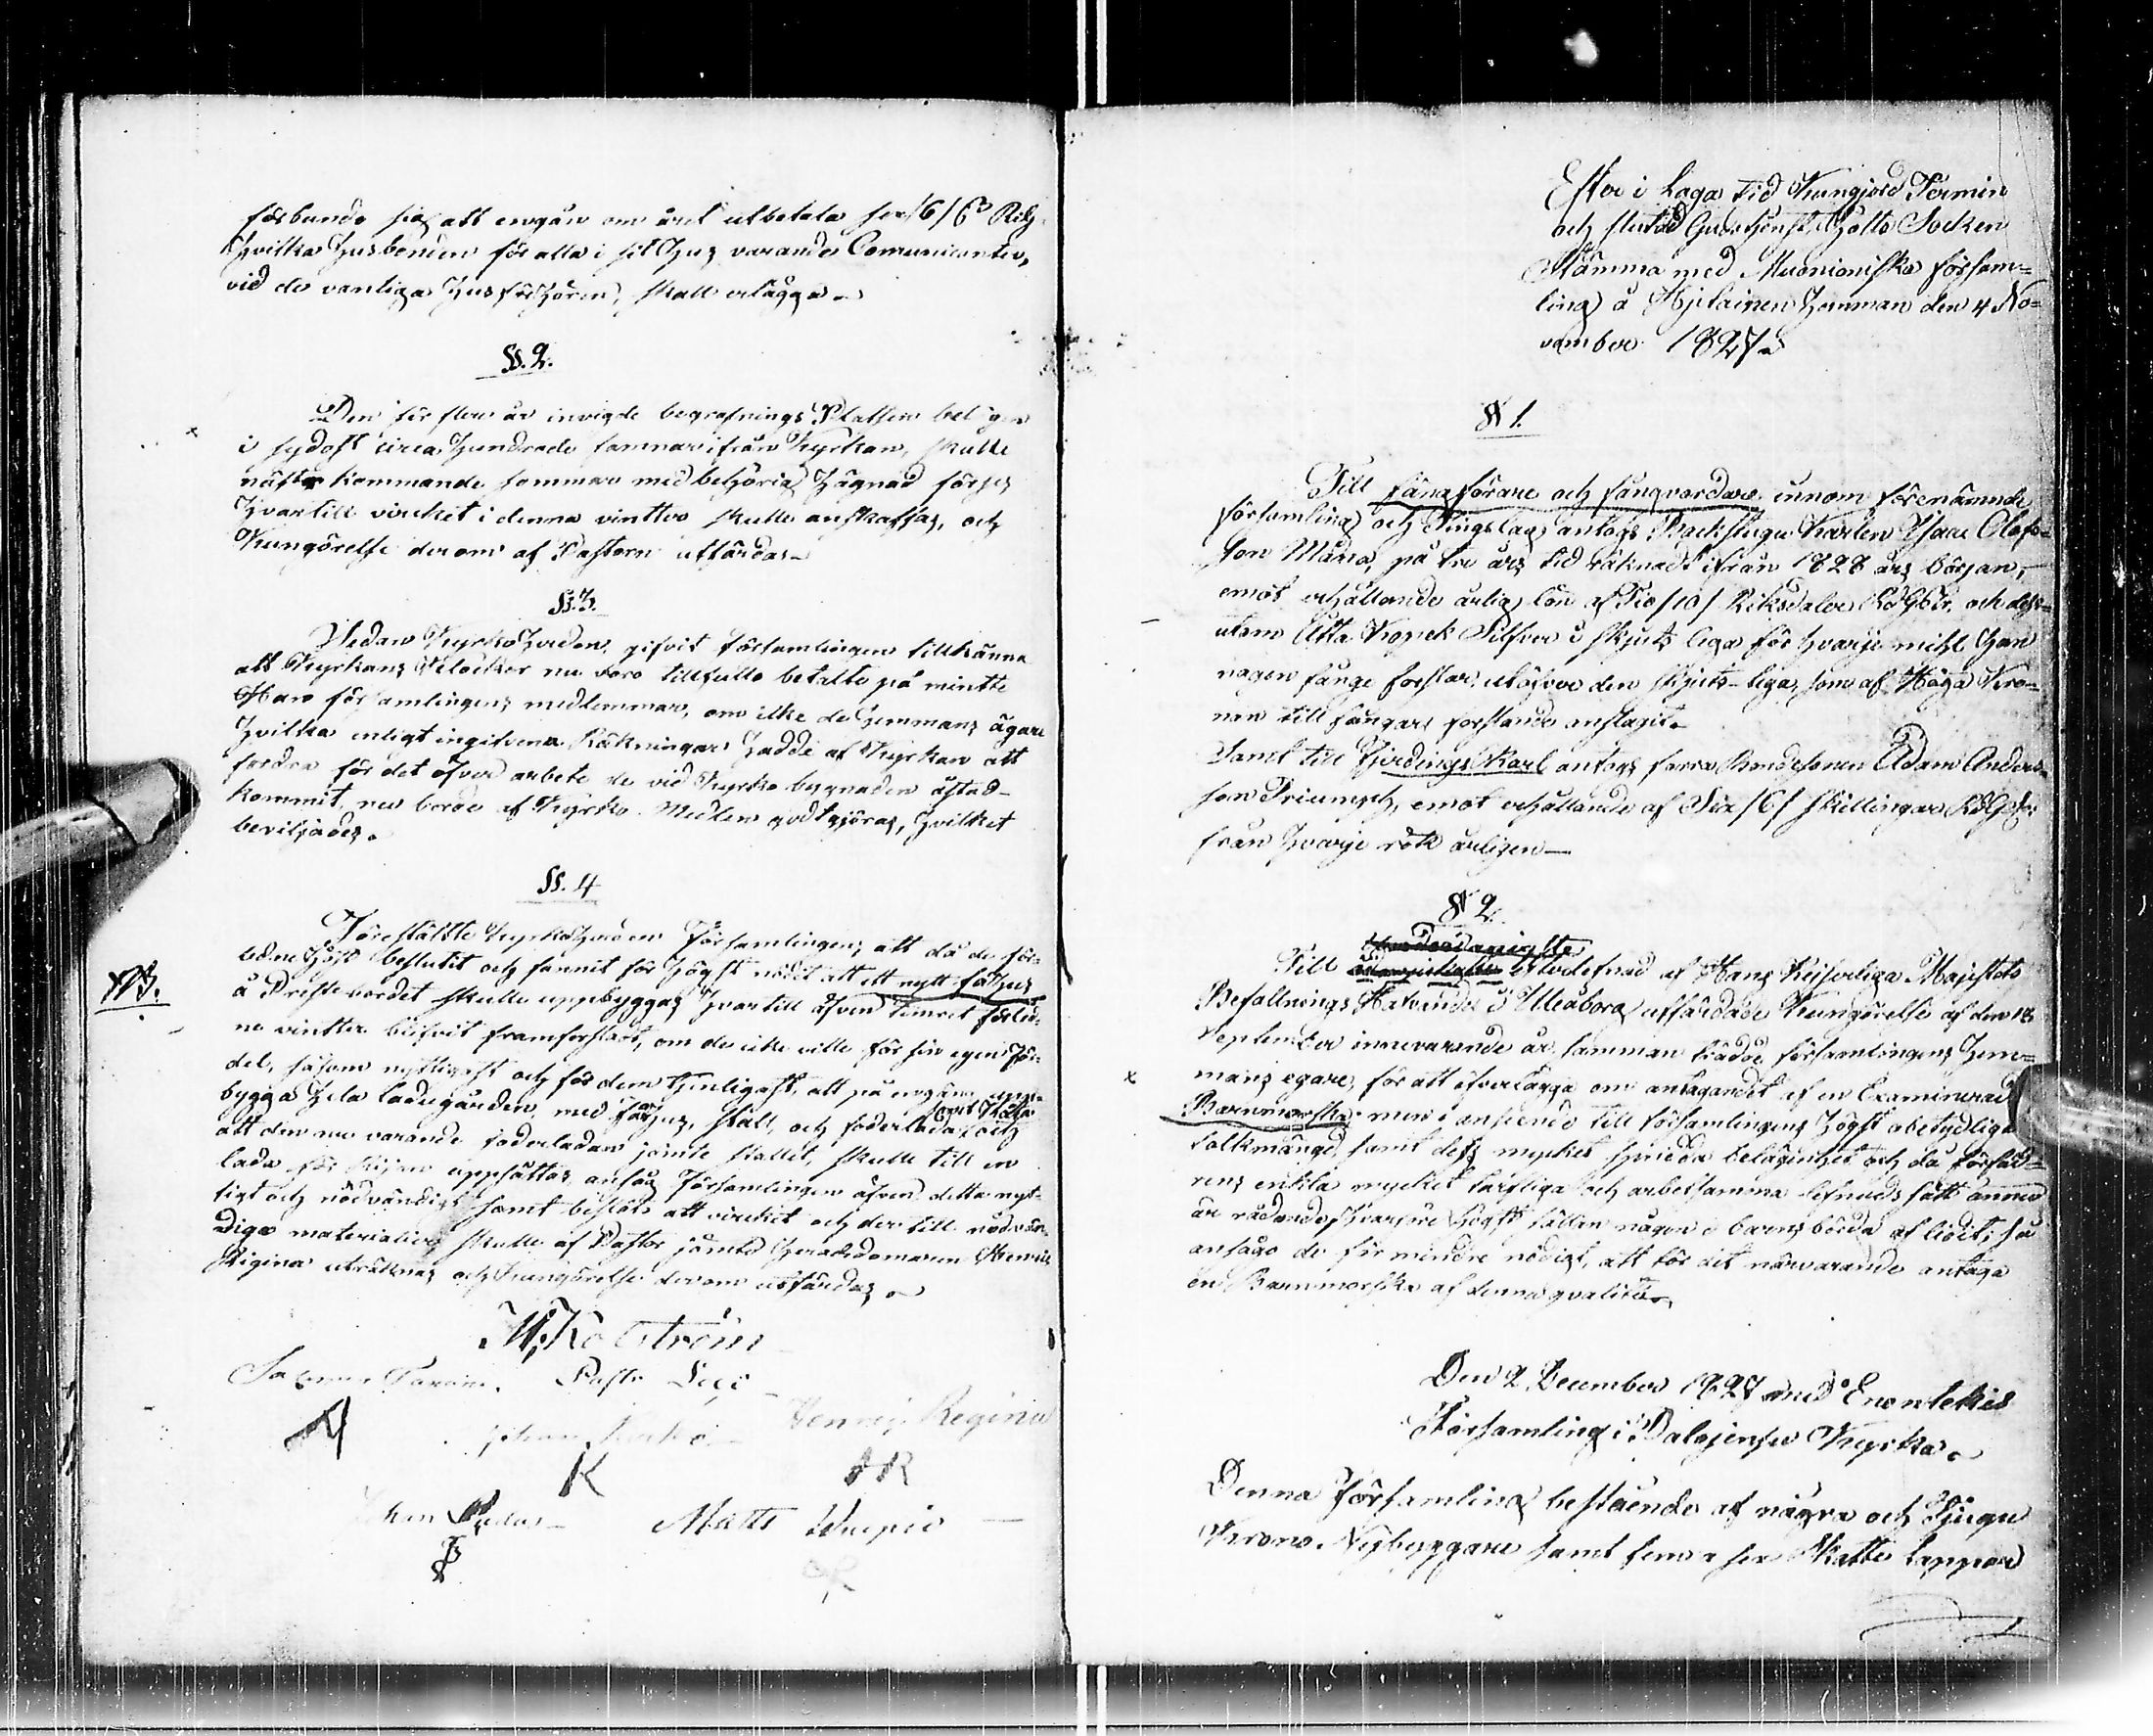 förbundo sig att engån om året utbetala sex /6/ 6 Rdlr
hvilka husbonden för alla i sit hus varande Comunicanter,
vid de vanliga husförhören, skall erlägga.
§§. 2.
Den för flere år invigde begrafnings Platsen belägen
i sydost circa hundrade famnar ifrån Kyrkan, skulle
nästa kommande sommar med behörig hägnad förses
hvartill virket i denna vintter skulle anskaffas, och
Kungörelse derom af Pastorn utfärdas.
§§. 3.
Sedan Kyrkoherden gifvit församlingen tillkänna
att Kyrkans klockor nu voro tillfullo betalte på mintte
församlingens medlemmar, om icke de hemmans ägare
hvilka enligt ingifvena Räkningar hadde af Kyrkan att
fordra för det öfver arbete de vid Kyrko byggnaden åstad-
kommit, nu borde af Kyrko Medlen godtgöras, hvilket
beviljades.
§§. 4
NB.
Förestältte Kyrkoherden Församlingen, att då de för-
ledne höst beslutit och funnit för högst nödit att ett nytt fähus
å Prestebordet skulle uppbyggas hvartill äfven timret förlid-
ne vintter blifvit framforslat, om de icke ville för sin egen för-
del, såsom nyttigast och för dem tjenligast, att på engång upp-
bygga hela ladugården, med fårhus, stall, och foderlada samt
att den nu varande foderladan jämte stallet, skulle till en
lada för uppsättas, ansåg Församlingen äfven detta nyt-
tigt och nödvändigt samt beslöts att virket och der till nödvän-
diga materialier skulle af Pastor jämte heradsdomaren Henric
Rigina uträknas och kungörelse derom utfärdas.
M. Kolström
Pastor
Johan
Henric Regina
K
HR
Johan
Matts Wuopio
Efter i Laga tid Kungjord Termin
och slutad Gudstjenst, hölts Socken
Stämma med Muonioniska försam-
ling å Hjetainen hemman den 4 No-
vember 1827.
§ 1.
Till fångförare och fångvardare innom förenämnde
församling och Tingslag antogs Backstugu Karlen Isaac Olofs-
son på tre års tid räknadt ifrån 1828 års början,
emot erhållande årlig lön af Tio /10/ Riksdaler och dess-
utom Åtta Kopek Silfver i skjuts lega för hvarje mihl han
nagon fånge forslar, utöfver den skjuts-lega, som af Höga Kro-
nan till fångars forslande anslagit.
Samt till Fjerdings Karl antogs forra Bondesonen Adam Anders-
son Triumph, emot erhållande af Sex /6/ Skillingar
från hvarje rök årligen —
§ 2.
Till efterlefnad af Hans Keiserliga Majestets
Befallnings Hafvandes i Uleåborg utfärdade Kungörelse af den 18
September innevarande år, samman trädde församlingens hem-
mans egare, för att öfverlägga om antagandet af en Examinerad
Barnmorska, men i anseende till församlingens högst obetydliga
folkmängd samt dess mycket spridda belägenhet och då
enkla mycket tarfliga och arbetsamma lefnads sätt
är rådande, hvarföre högst sällan någon i barnsbörd af lidit; så
ansågo de för mindre nödigt, att för det närvarande antaga
en Barnmorska af denna qvalité.
Den 2 December 1827 med Enontekis
Församling i Palojensu Kyrka.
Denna Församling bestående af några och Tjugu
Krono Nybyggare samt fem a sex Skatte Lappar